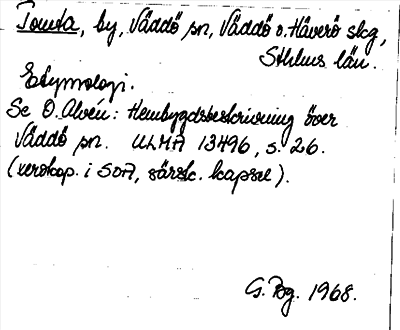 Tomta, by, Väddö sn, Väddö o. Häverö skg,
Sthlms län.
Etymologi.
Se O. Alvén: Hembygdsbeskrivning över
Väddö sn. ULMA 13496, s. 26.
(xeroxkop. i SOA, särsk. kapsel).
G. Bg. 1968.